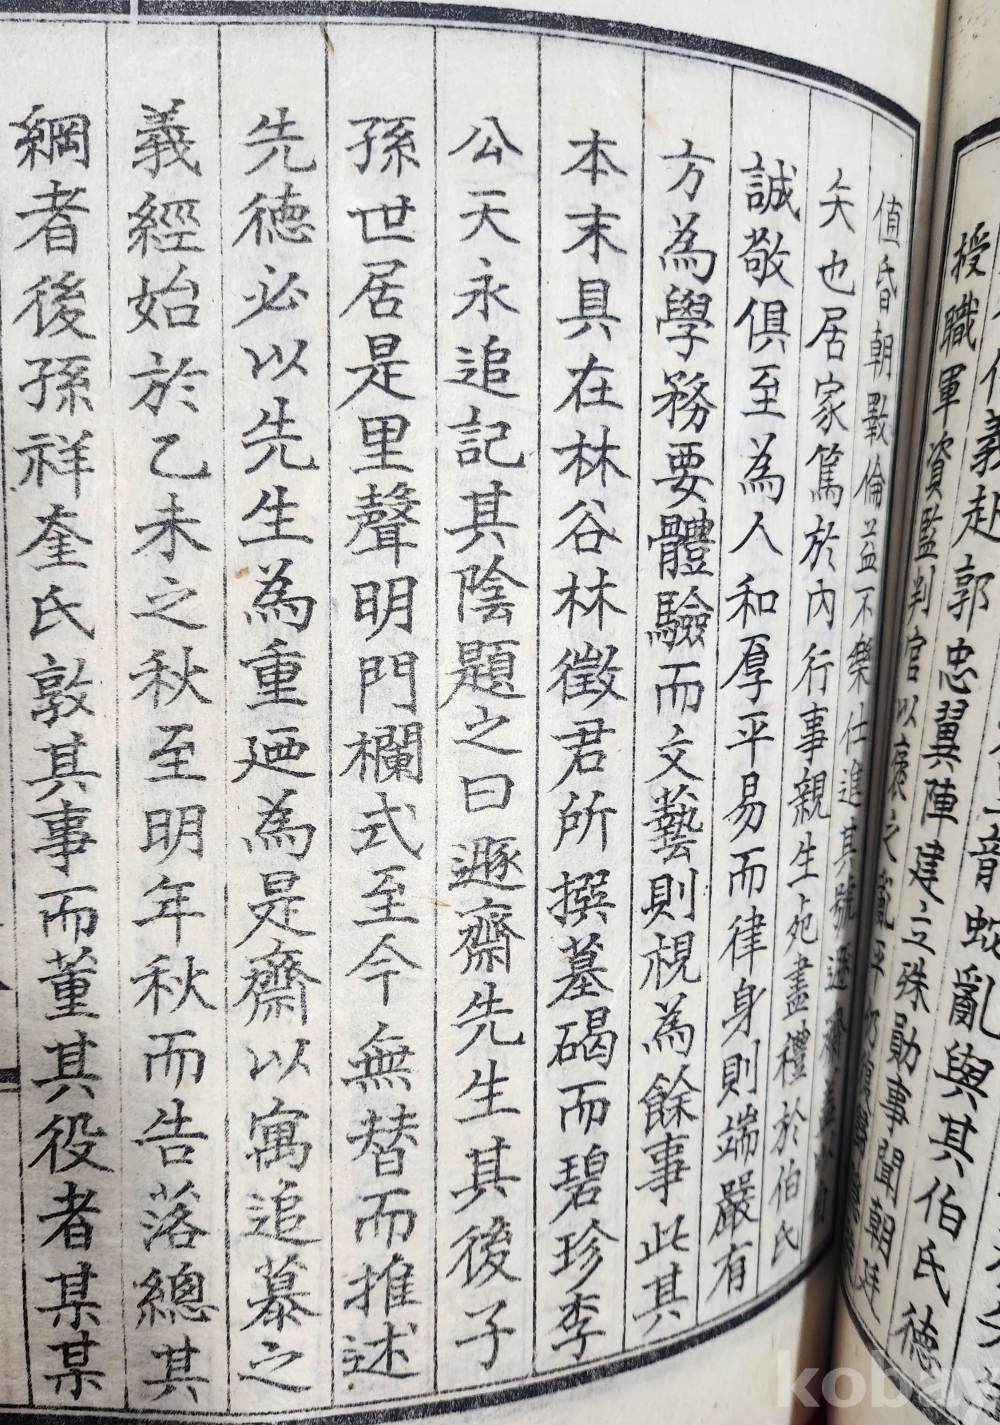 授職軍資監判官以褒之亂平
郭忠翼陣建立殊勛事聞朝廷
亂與其伯氏德
值昏朝斁倫益不樂仕進其號遯齋
矢也居家篤於內行事親生死盡禮於伯氏
誠敬俱至為人和厚平易而律身則端嚴有
方為學務要體驗而文藝則視為餘事此其
本末具在林谷林徵君所撰墓碣而碧珍李
公天永追記其陰題之曰遯齋先生其後子
孫世居是里聲明門欄式至今無替而推述
先德必以先生為重廼為是齋以寓追慕之
義經始於乙未之秋至明年秋而告落總其
綱者後孫祥奎氏敦其事而董其役者某某
kobay